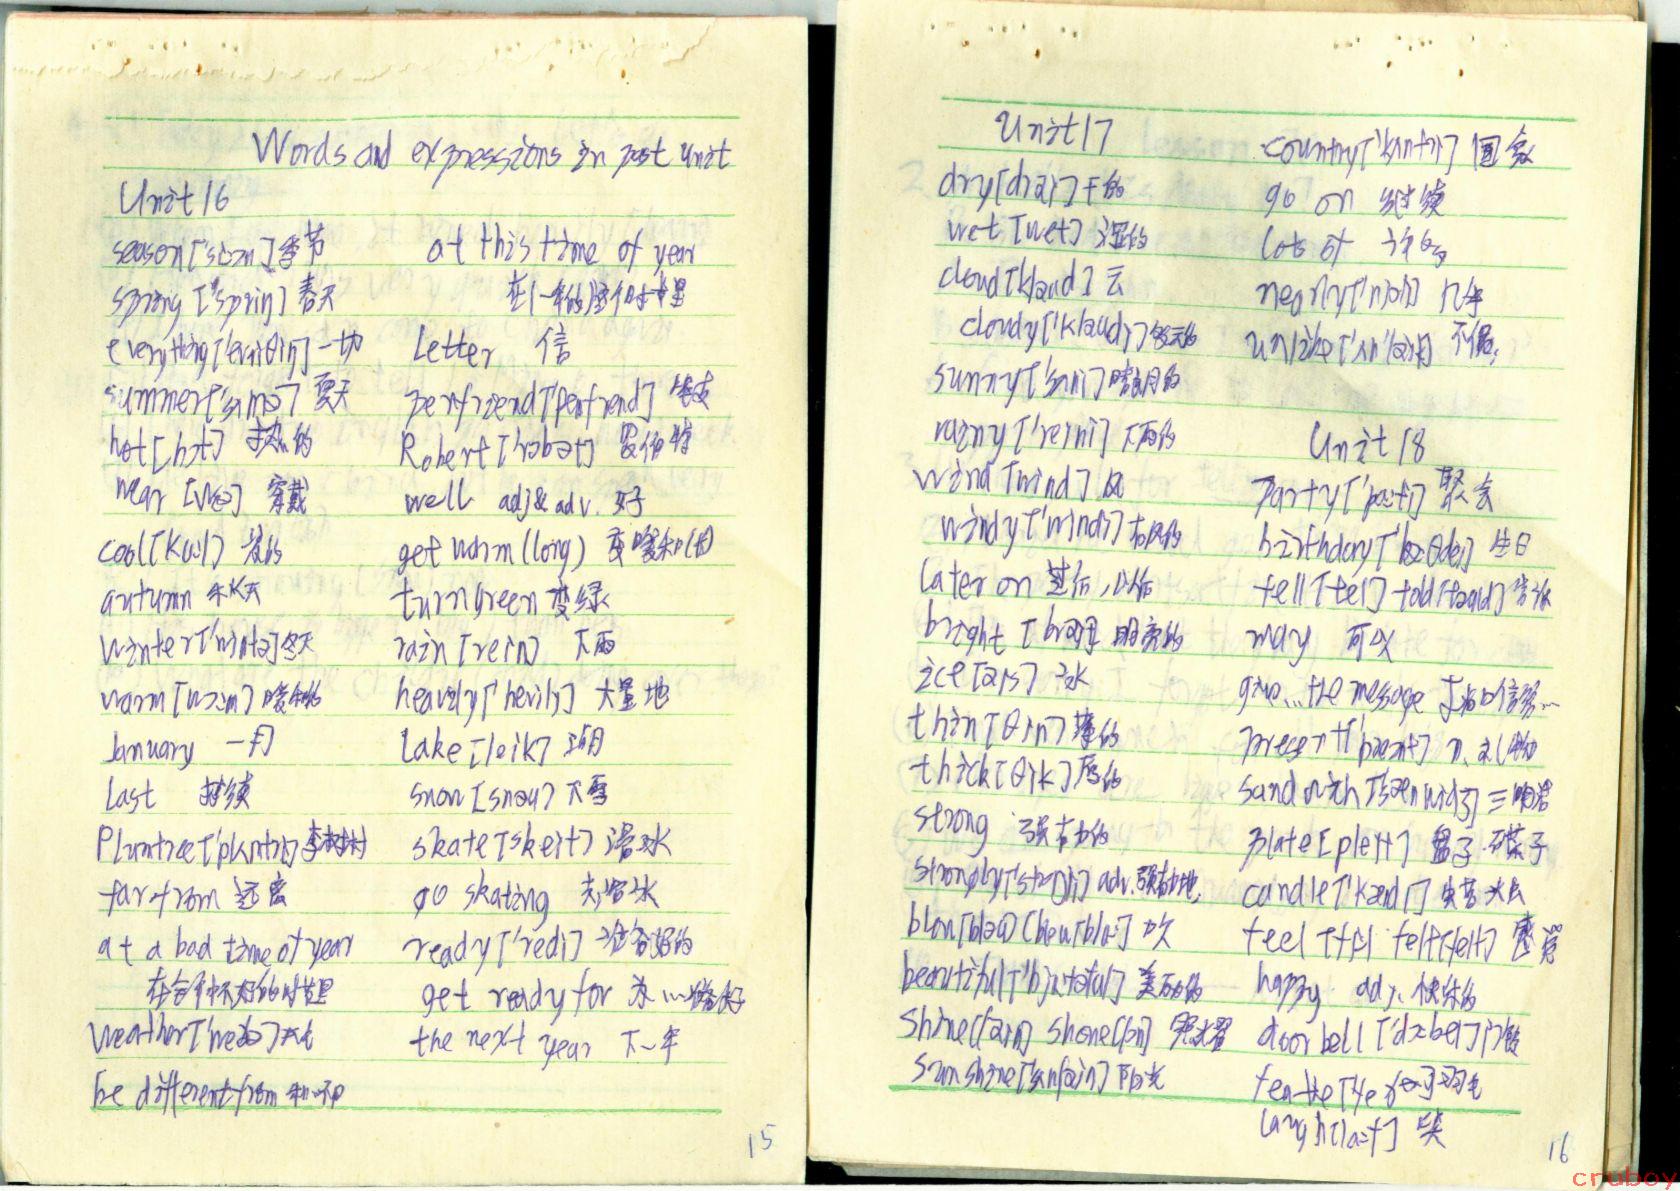 Words and expressions in past unit
Unit 16
season ['si:zn] 季节
spring [spriŋ] 春天
everything ['evriθiŋ] 一切
summer ['sʌmə] 夏天
hot [hɔt] 热的
wear [wεə] 穿戴
cool [ku:l] 凉的
autumn 秋天
winter ['wintə] 冬天
warm [wɔ:m] 暖和的
January 一月
last 持续
Plumtree 李树
far from 远离
at a bad time of year
weather ['weðə] 天气
be different from 和…不同
at this time of year
Letter 信
penfriend ['penfrend] 笔友
Robert ['rɔbət] 罗伯特
well adj & adv. 好
get warm (long)
turn green 变绿
rain [rein] 下雨
heavily ['hevili] 大量地
lake [leik] 湖
snow [snəu] 下雪
skate [skeit] 滑冰
go skating 去滑冰
ready ['redi] 准备好的
get ready for 为…准备好
the next year 下一年
15
Unit 17
dry [drai] 干的
wet [wet] 湿的
cloud [klaud] 云
cloudy ['klaudi]
sunny ['sʌni] 晴朗的
rainy ['reini] 下雨的
wind [wind] 风
windy ['windi] 有风的
later on 过后，以后
bright [brait] 明亮的
ice [ais] 冰
thin [θin] 薄的
thick [θik] 厚的
strong 强有力的
strongly ['strɔŋli] adv. 强有力地.
blow [bləu] (blew [blu:]) 吹
beautiful ['bju:təful] 美丽的
shine [ʃain] shone [ʃɔn] 照耀
sunshine ['sʌnʃain] 阳光
country ['kʌntri] 国家
go on 继续
lots of 许多
nearly ['niəli] 几乎
unlike ['ʌn'laik] 不像,
Unit 18
party ['pa:ti] 聚会
birthday ['bə:θdei] 生日
tell [tel] told [təuld] 告诉
may 可以
give...the message
present ['preznt] n. 礼物
sandwich ['sænwidʒ] 三明治
plate [pleit] 盘子.碟子
candle ['kændl]
feel [fi:l] felt [felt] 感觉
happy adj. 快乐的
doorbell ['dɔ:bel] 门铃
laugh [la:f] 笑
16
cruboy